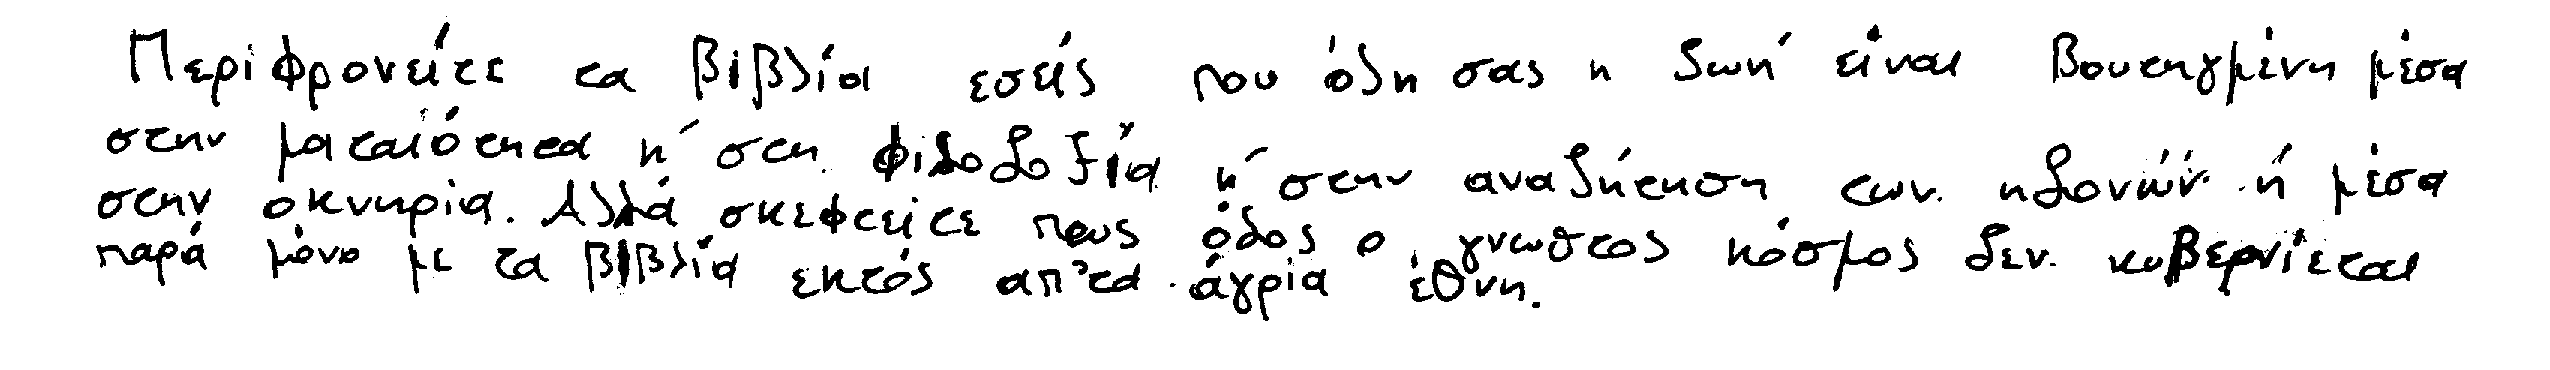 Περιφρονείτε τα βιβλία εσείς που όλη σας η ζωή είναι βουτηγμένη μέσα
στην ματαιότητα ή στη φιλοδοξία ή στην αναζήτηση των ηδονών ή μέσα
στην οκνηρία. Αλλά σκεφτείτε πως όλος ο γνωστος κόσμος δεν κυβερνιέται
παρά μόνο με τα βιβλία εκτός απ'τα άγρια έθνη.